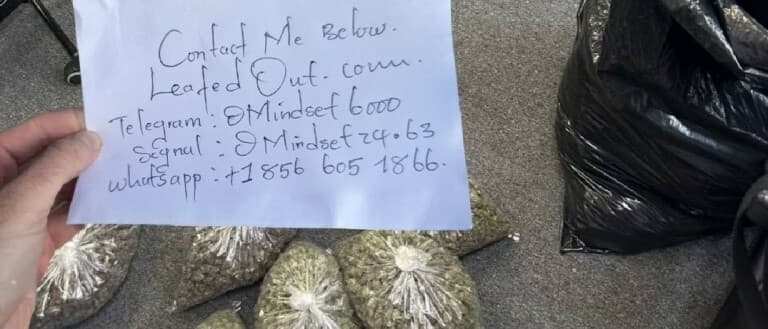 Contact Me Below.
Leafed Out. com.
Telegram : @Mindset6000
Signal : @Mindset24.63
whatsapp : +1 856 605 1866.